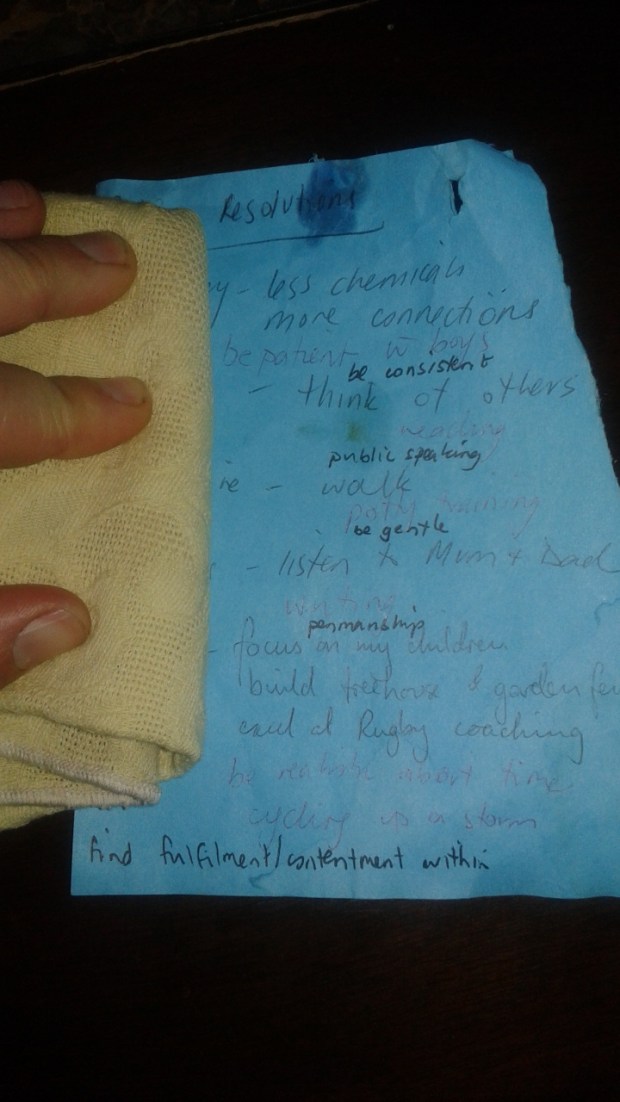 Resolutions
y - less chemicals
more connections
be patient w boys
be consistent
- think of others
reading
public speaking
re - walk
potty training
be gentle
- listen to Mum + Dad
writing
penmanship
- focus on my children
build treehouse & garden fen
excel at Rugby coaching
be realistic about time
cycling up a storm
find fulfilment/contentment within